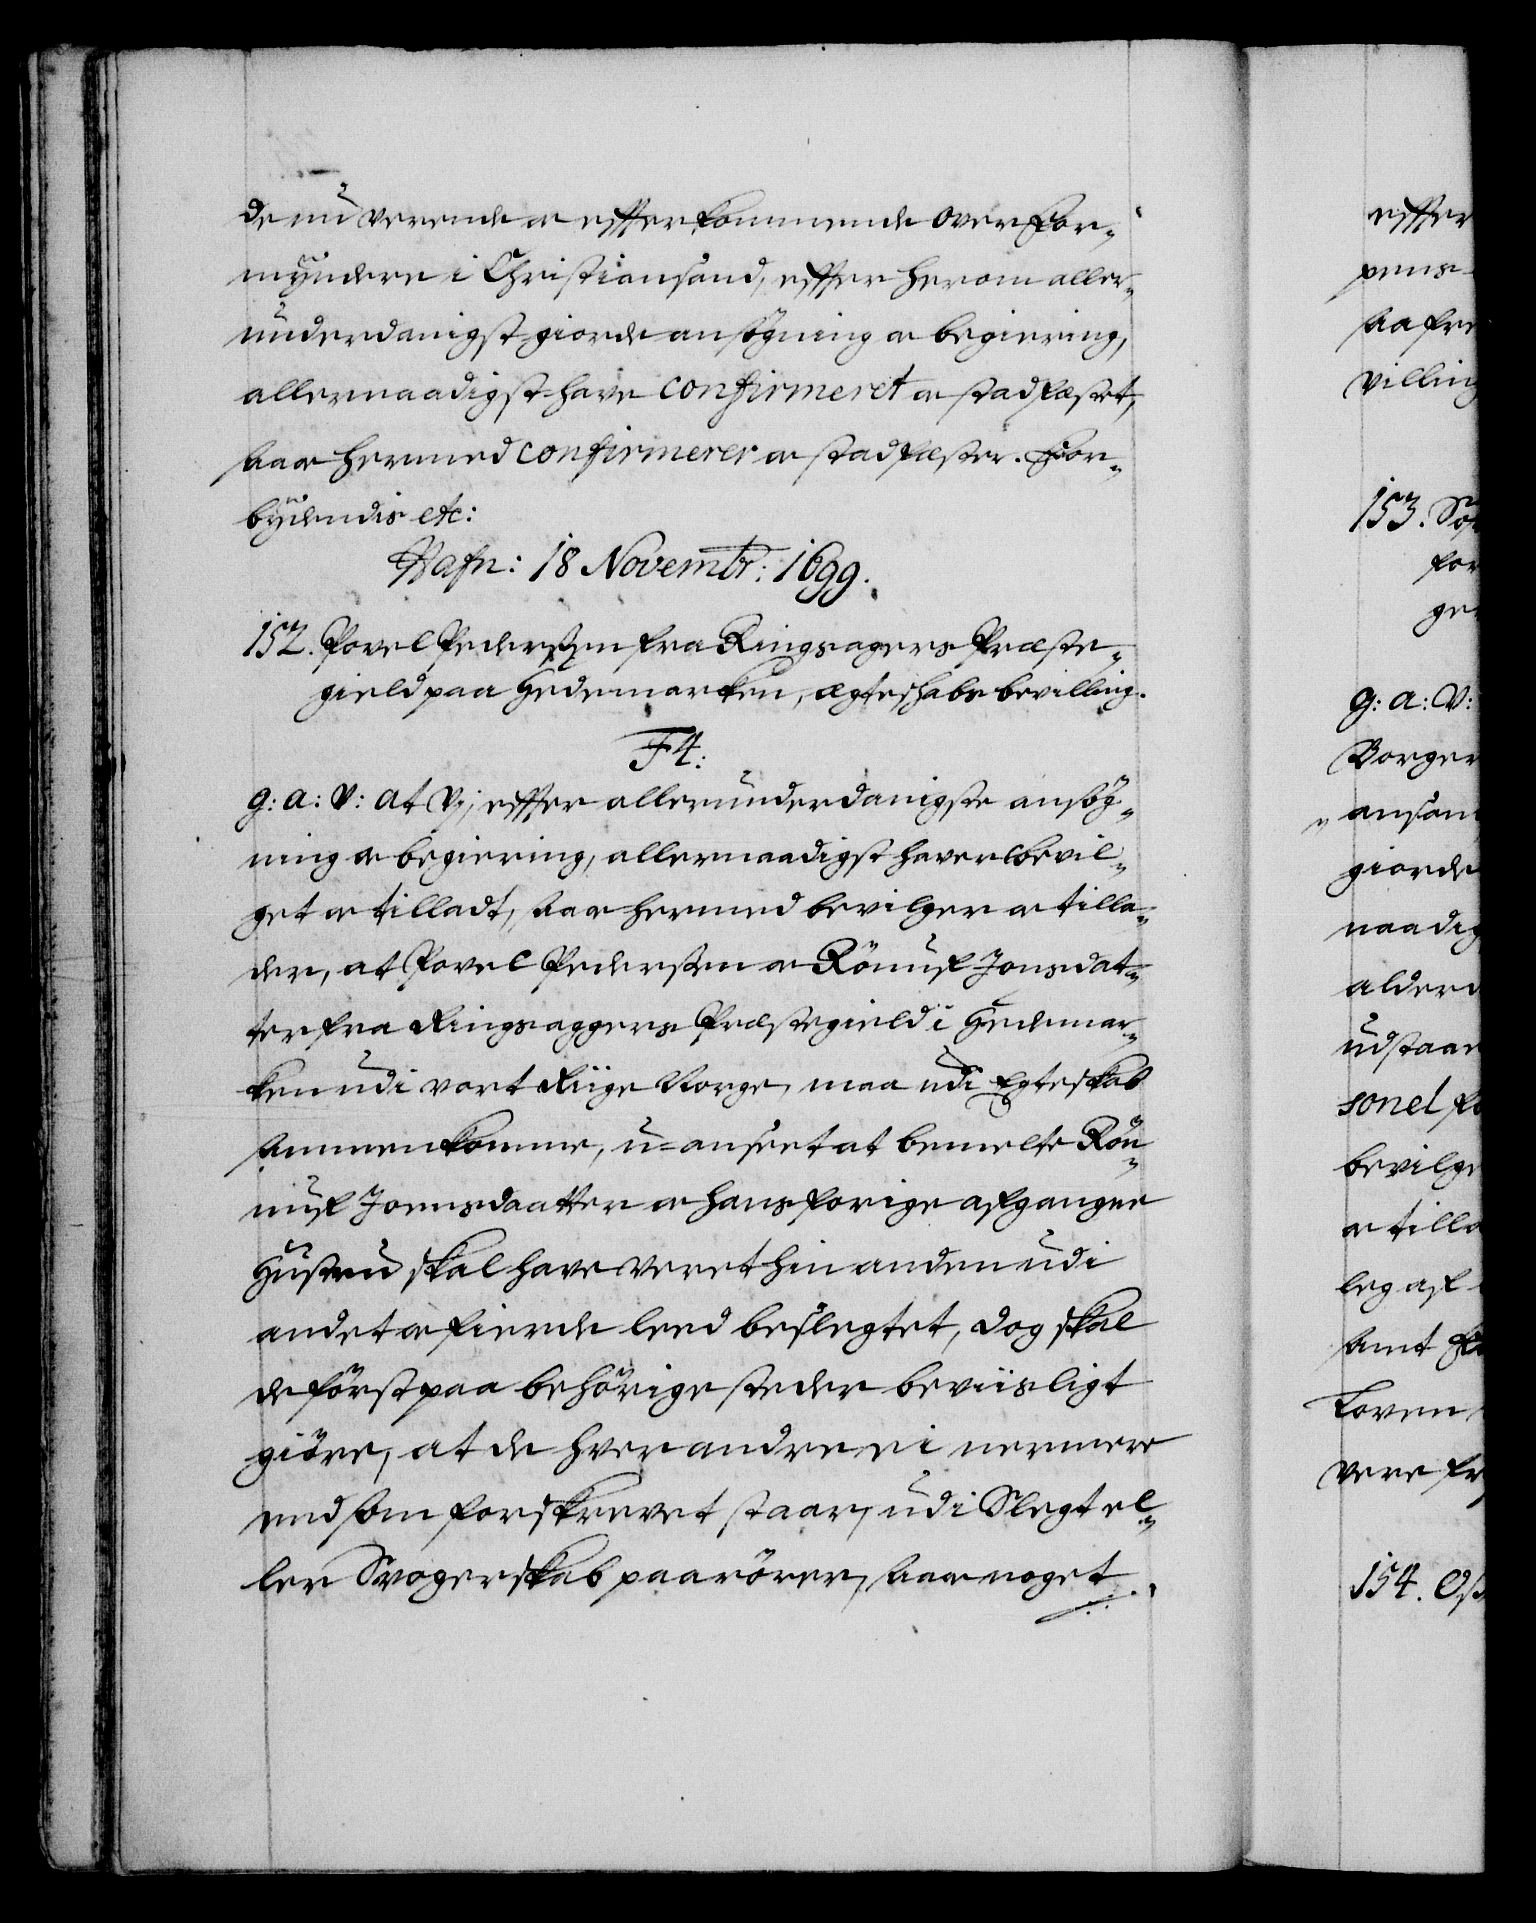 de nu verende og effterkommende Overfor-
myndere i Christiansand, effter herom aller-
underdanigst giorde ansögning og begiering,
allernaadigst have confirmeret og stadfæstet,
saa og hermed confirmerer og stadfæster. For-
bydendis etc:
Hafn: 18 Novembr: 1699.
152. Povel Pederssen fra Ringsagers Præste-
gield paa Hedemarken, ægteskabs bevilling.
F4:
g: a: v: at Vj, effter allerunderdanigste ansög-
ning og begiering, allernaadigst haver bevil-
get og tilladt, saa og hermed bevilger og tilla-
der, at Povel Pederssen og Rönnuf Jonsdat-
ter fra Ringsaggers Præstegield i Hedemar-
ken udi vort Riige Norge, maa udi Egteskab
sammenkomme, u-anseet at bemelte Rön-
nuf Joensdaatter og hans forige afgangne
Hustru skal have veret hin anden udi
andet og fierde leed beslegtet, dog skal
de först paa behörige steder beviisligt
giöre, at de hver andre ei nermere
end som forskrevet staar, udi Slegt el-
ler Svogerskab paarörer, saa og noget
effter
villing
153.
for
g: a: v:
Borger
giorde
naadig
udstaar
sonel
bevilge
og tilla
leg af
Loven
154.